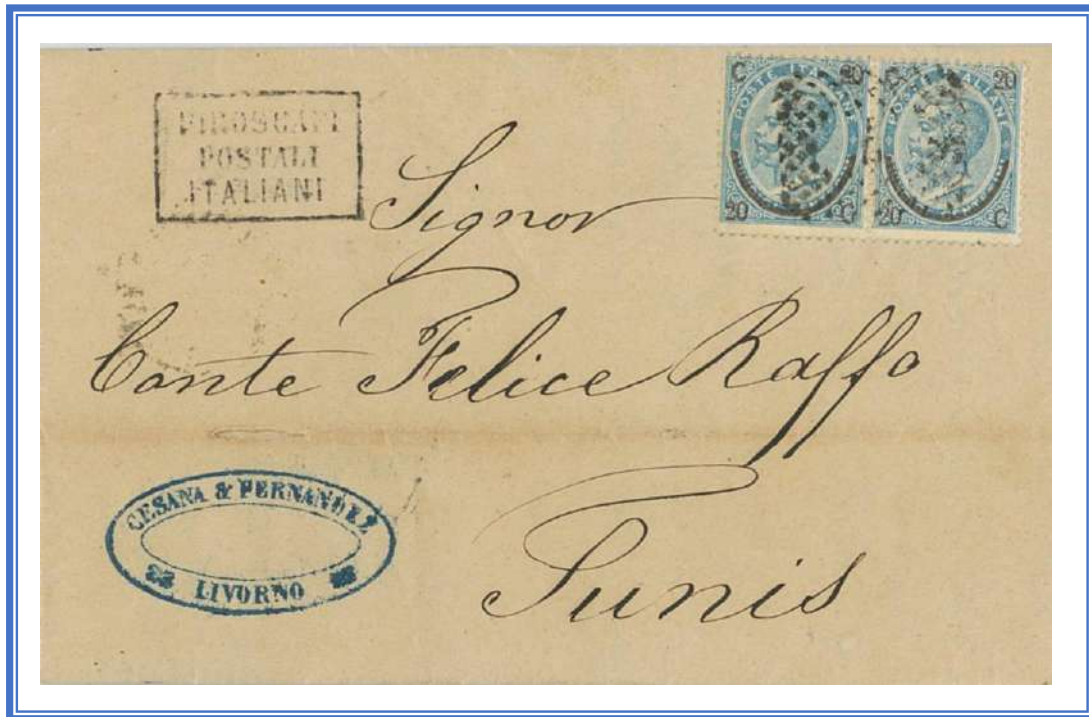 PIROSCAFI
POSTALI
ITALIANI
C 20
POSTE ITALIANE
20 C
20
POSTE ITALIANE
20 C
Signor
Conte Felice Raffo
Tunis
CESANA & FERNANDEZ
LIVORNO